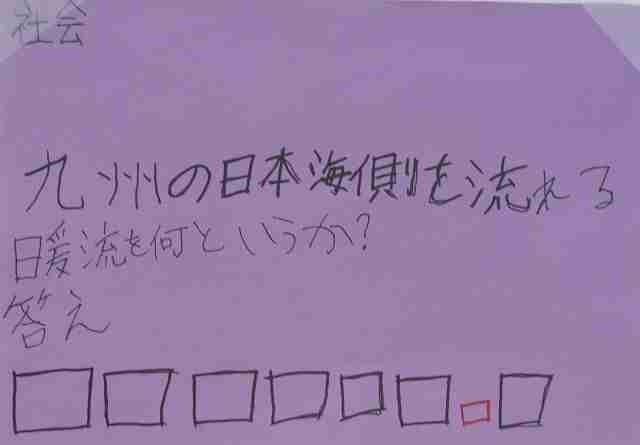 社会
九州の日本海側を流れる
暖流を何というか?
答え